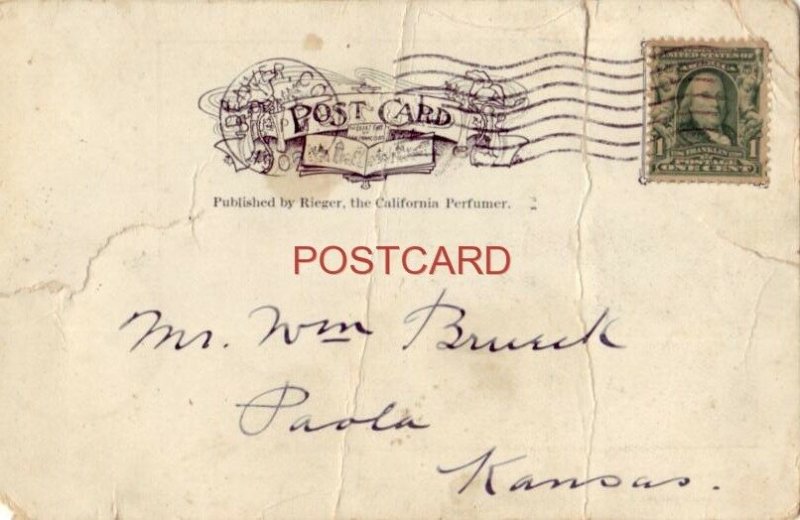 DENVER, COLO.
POST CARD
UNITED STATES OF
AMERICA
1
1
FRANKLIN
POSTAGE
ONE CENT
Published by Rieger, the California Perfumer.
POSTCARD
Mr. Wm Brueck
Paola
Kansas.